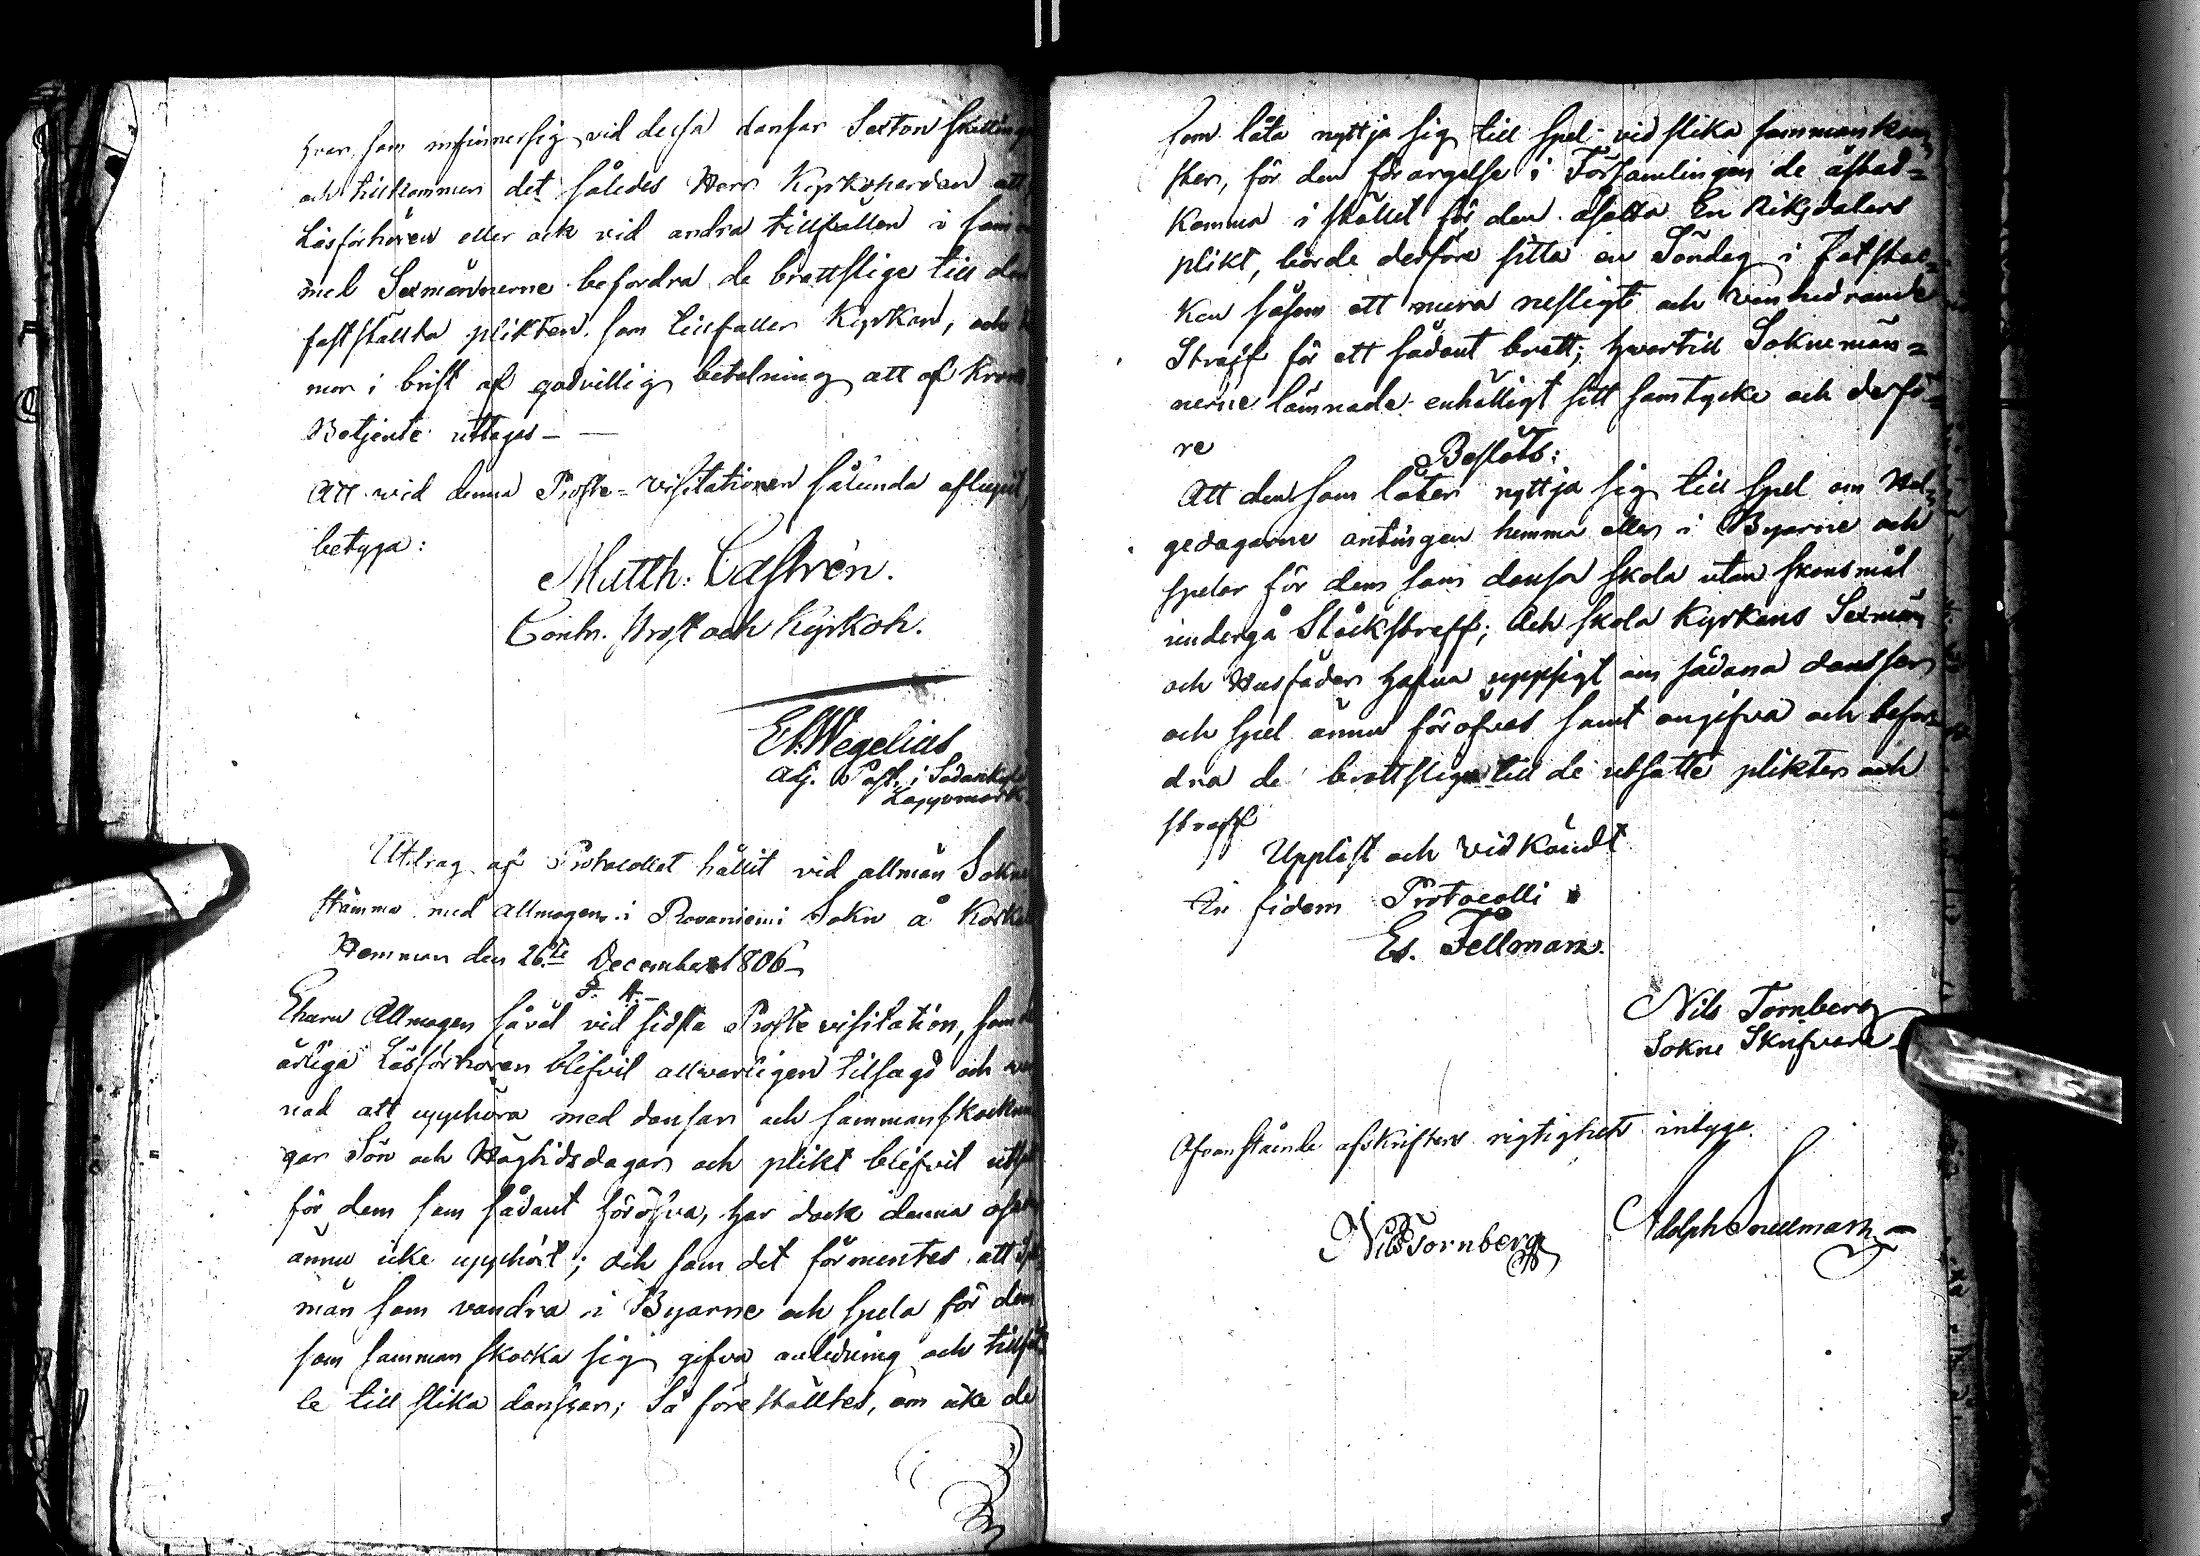 hvar som infinner sig vid dessa dansar Sexton skilling
och tillkommer det således Herr Kyrkoherden att
Läsförhören eller ock vid andra tillfällen i
med Sexmännerne befordra de brottslige till den
fastställda plikten som tillfaller Kyrkan, och
mer i brist af godvillig betalning att af Krono
Betjente uttages —
Att vid denna Proste-Visitationen sålunda aflupit,
betyga:
Matth: Castrén.
Contr. Prost och Kyrkoh.
Es. Wegelius
Adj. Past. i Sodankylä
Lappmark
Utdrag af Protocollet hållit vid allmän Sokne
stämma med allmogen i Rovaniemi Sokn å Korka
Hemman den 26te December 1806
§. 4.
Ehuru Allmogen såväl vid sidsta Proste visitation, som
årliga Läsförhören blifvit allvarligen tilsagd och
nad att upphöra med dansar och sammanskocknin
gar Sön och Högtidsdagar och plikt blifvit utsatt
för dem som sådant föröfva, har dock denna
ännu icke upphört; och som det förmentes att
män som vandra i Byarne och spela för dem
som samman skocka sig gifva anledning och tillfäl
le till slika danssar; Så föreställtes, om icke de
som låta nyttja sig till spel vid slika sammankom
ster, för den förargelse i Församlingen de åstad=
komma i stället för den åsatta En Riksdalers
plikt, borde derföre sitta en Söndag i Fotstoc=
ken såsom ett mera nesligt och vanhedrande
Straff för ett sådant brott; hvartill Soknemän=
nerne lämnade enhälligt sitt samtycke och derfö=
re
Beslöts:
Att den som låter nyttja sig till spel om Hel=
gedagarne antingen hemma eller i Byarne och
spelar för dem som dansa skola utan skonsmål
undergå Stockstraff; Och skola Kyrkans Sexmän
och Husfäder hafva uppsigt om sådana danssar
och spel ännu föröfvas samt angifva och befor=
dra de brottslige till de utsatte plikter och
straff
Upplåst och vidkändt
In fidem Protocolli
Es. Fellman.
Nils Tornberg
Sokne Skrifvare
Ofvanstående afskrifters rigtighet intyga.
Nils Tornberg Adolph Snellman